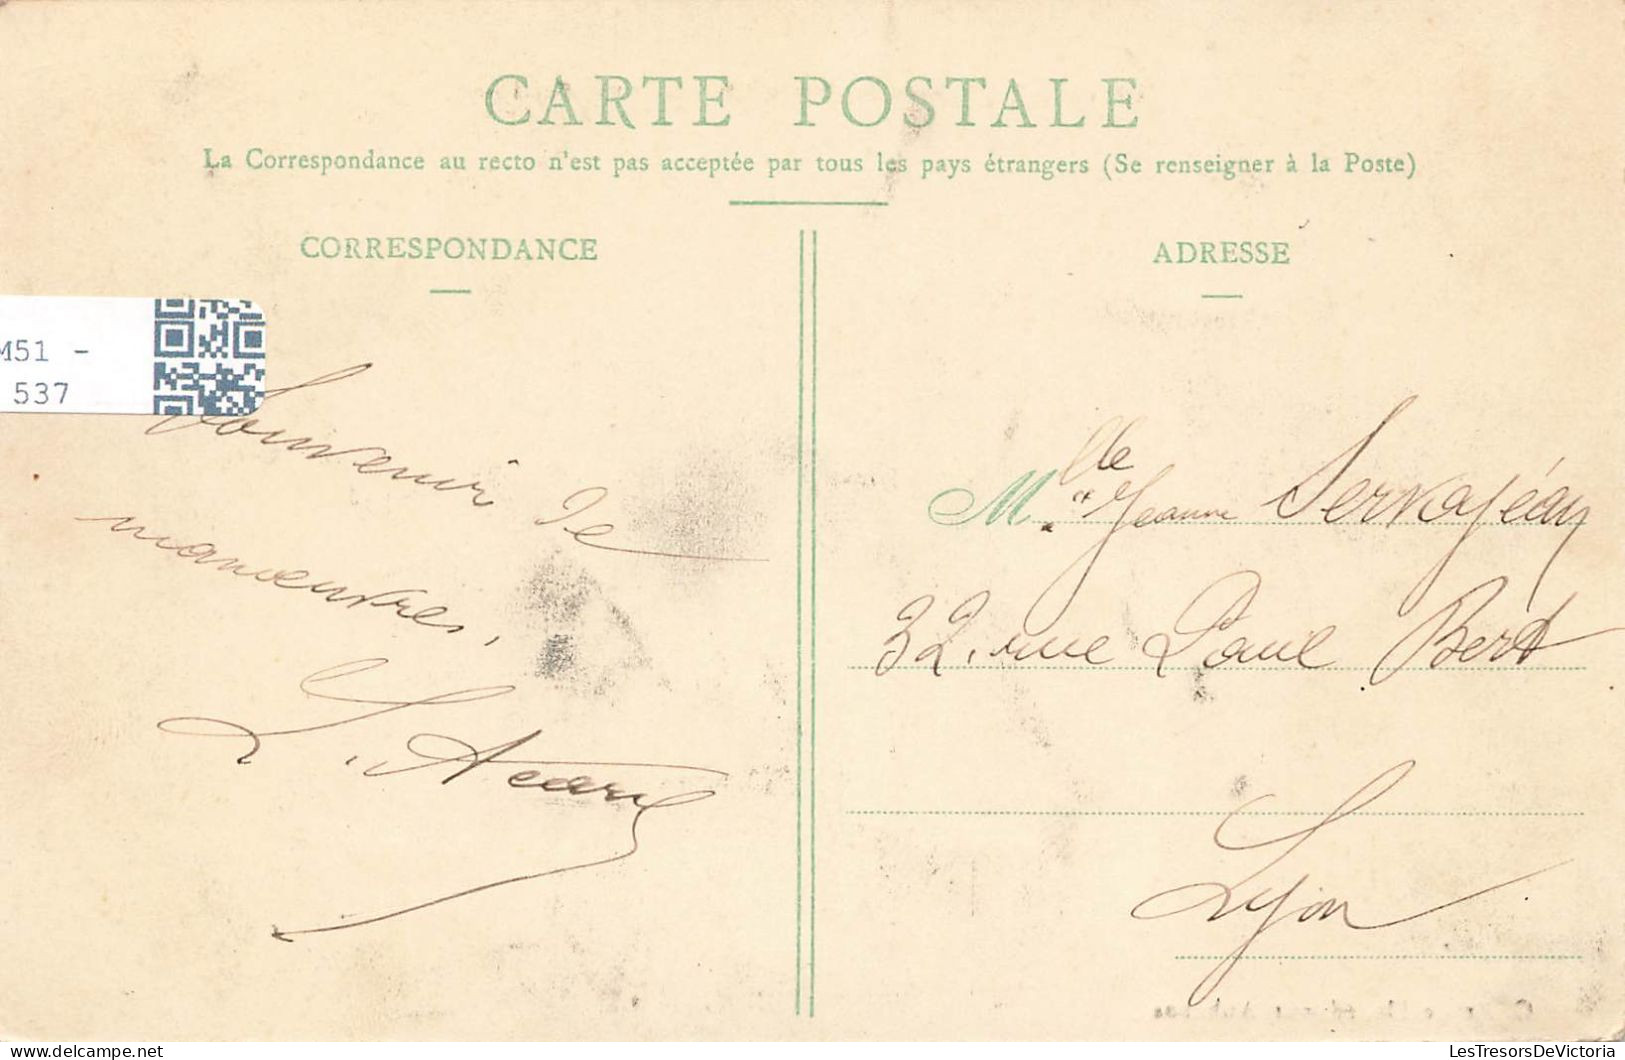 CARTE POSTALE
La Correspondance au recto n'est pas acceptée par tous les pays étrangers (Se renseigner à la Poste)
CORRESPONDANCE
M51 -
537
Souvenir de
manœuvres.
ADRESSE
Mlle Jeanne Servajéan
32, rue Paul Bert
Lyon
LesTresorsDeVictoria